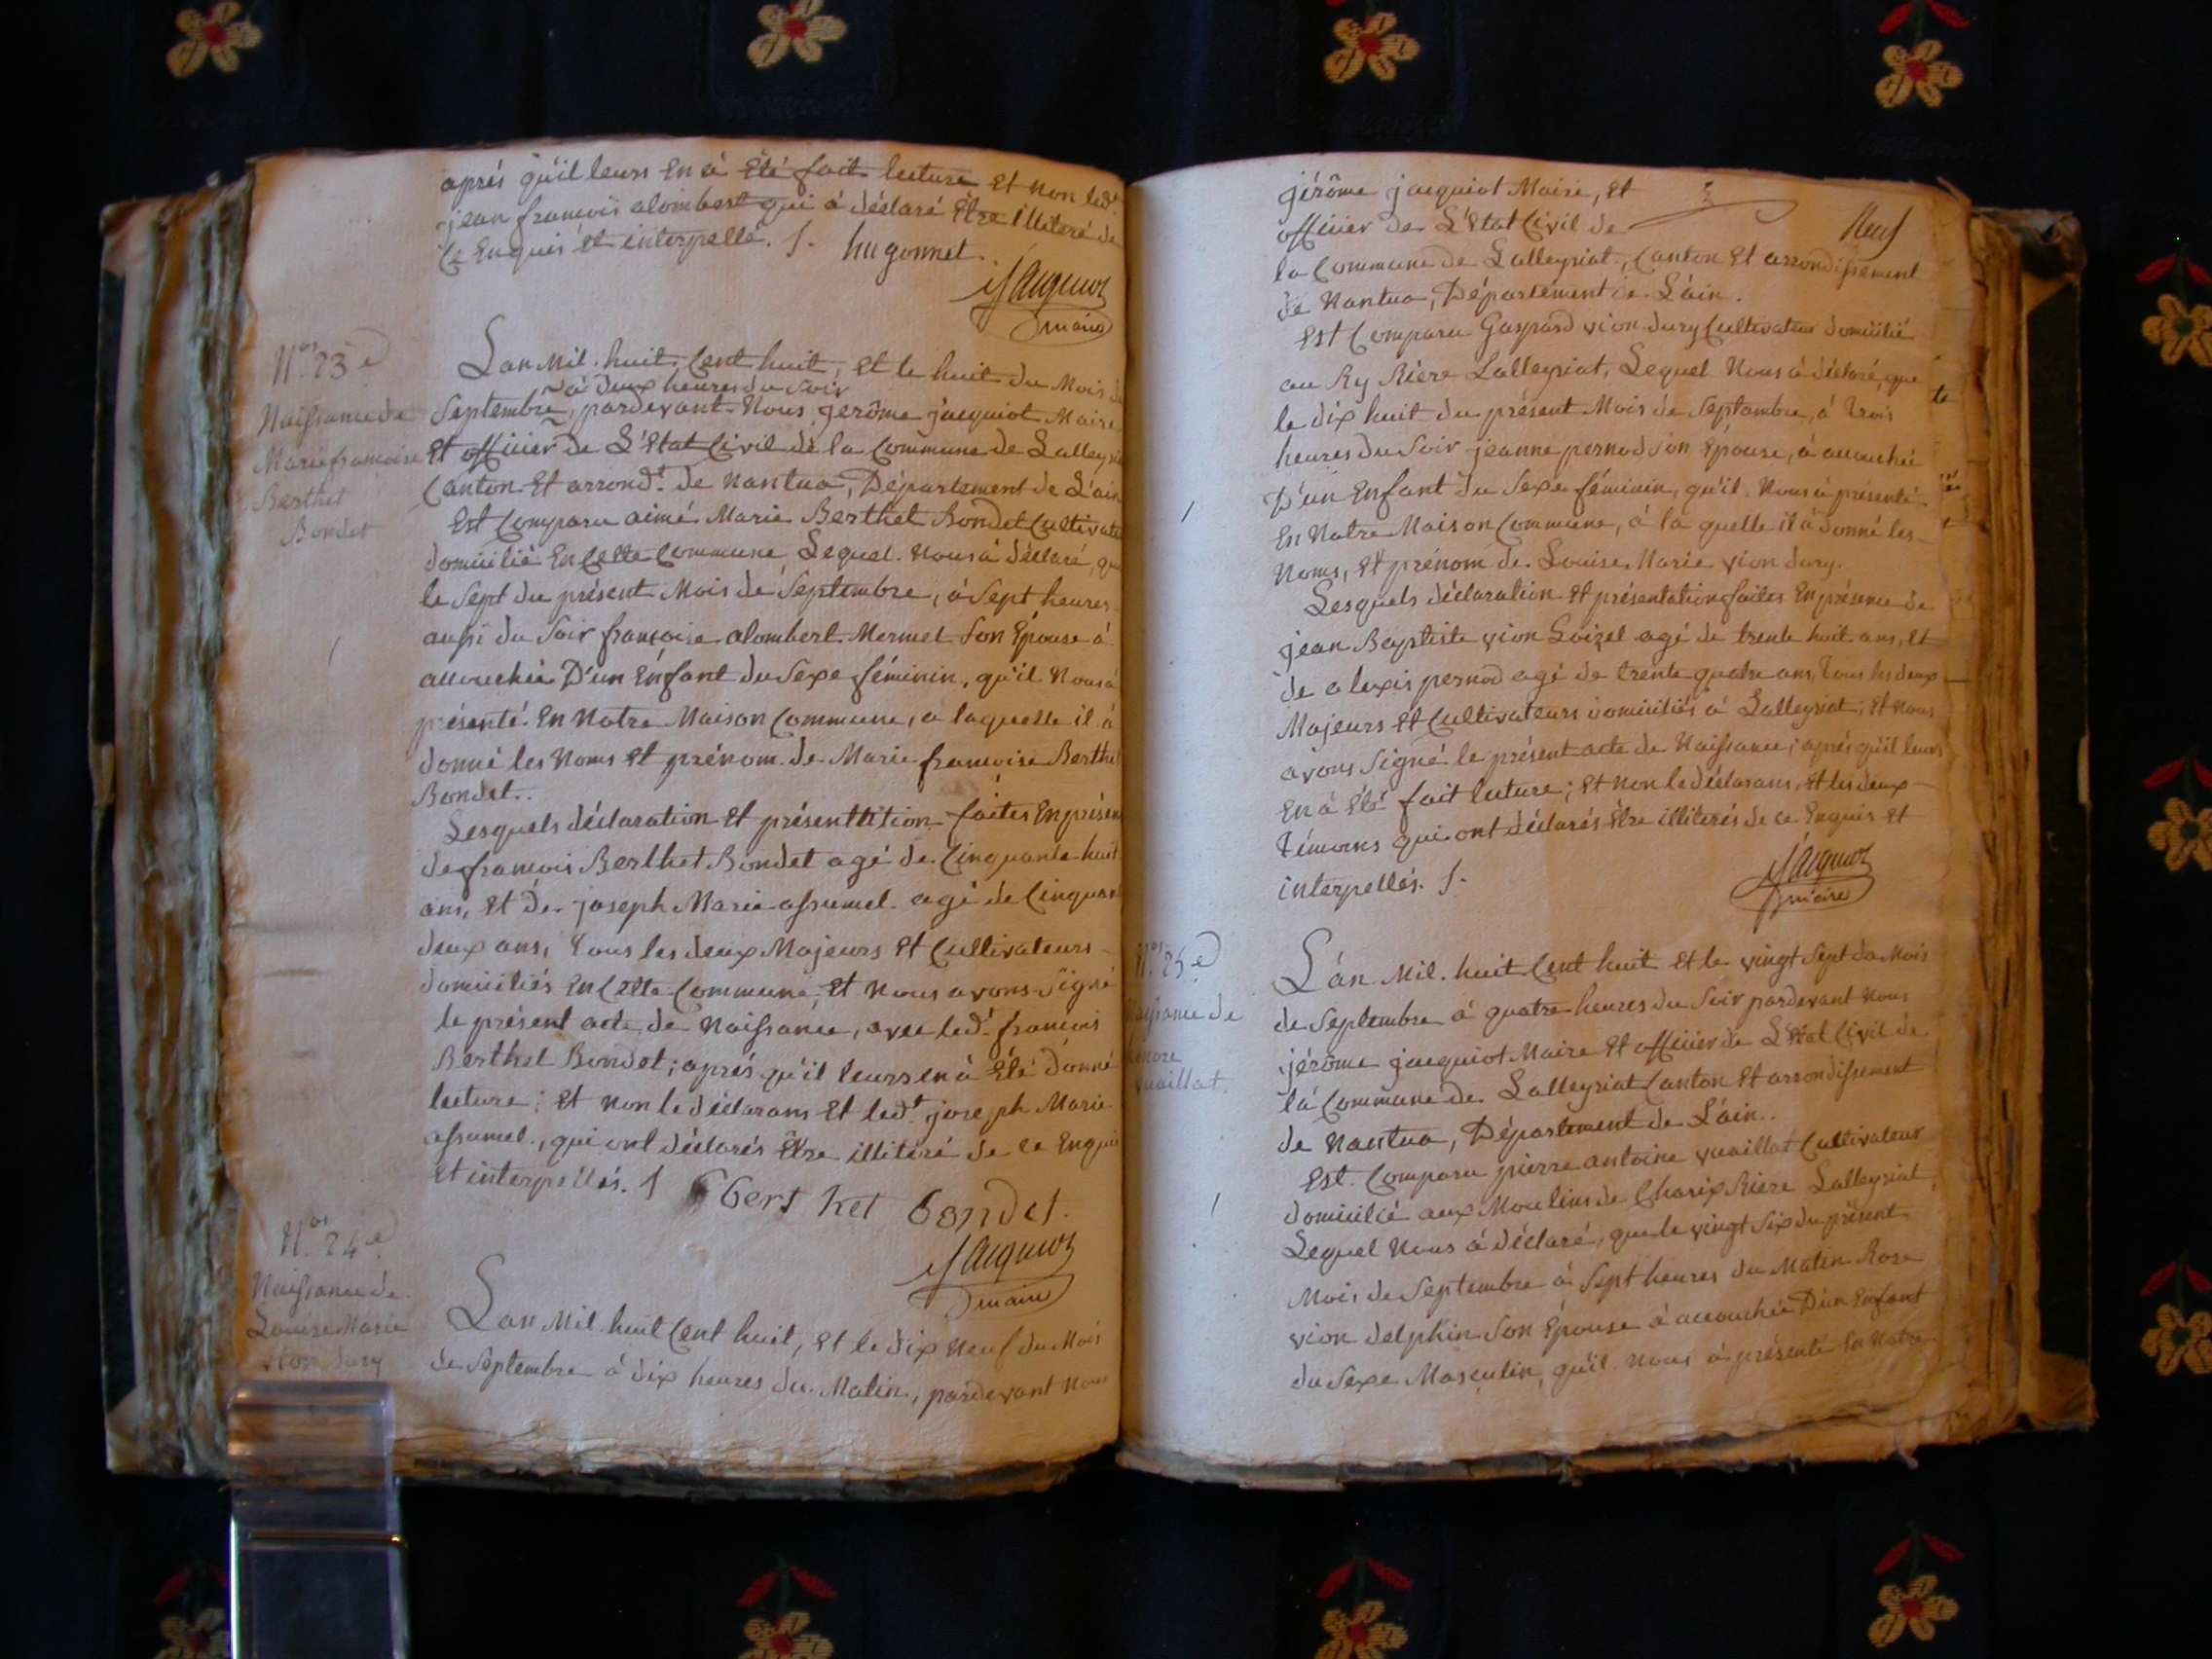 après qu'il leurs En à Été fait lecture Et non led.t
jean francois alombert qui à déclaré Être illiteré de
Ce Enquis et interpellé. /. hugonnet.
Jacquiot
maire
N.os 23.e
Naissance de
Marie francoise
Berthet
Bondet
Lan Mil. huit. Cent huit, Et le huit du Mois de
à deux heures du soir
Septembre, pardevant Nous jerôme jacquiot Maire
Et officier de L'Etat Civil de la Commune de Lalleyriat
Canton Et arrond.t de Nantua, Département de L'ain
Est Comparu aimé Marie Berthet Bondet Cultivateur
domicilié En Cette Commune, Lequel Nous à déclaré, que
le Sept du présent Mois de Septembre, à Sept heures
aussi du Soir francoise alombert Mermet Son Épouse à
accouchée D'un Enfant du Sexe féminin, qu'il Nous à
présenté En Notre Maison Commune, a laquelle il à
donné les Noms Et prénom de Marie francoise Berthet
Bondet..
Lesquels déclaration Et présenttition faites En présence
de francois Berthet Bondet agé de Cinquante huit
ans, Et de joseph Marie assumel agé de Cinquante
deux ans, Tous les deux Majeurs Et Cultivateurs
domiciliés En Cette Commune, Et Nous avons Signé
le présent acte de Naissance, avec led.t francois
Berthet Bondet; après qu'il leurs en à Été donné
lecture; Et Non le déclarans Et led.t joseph Marie
assumel., qui ont déclarés Être illiteré de ce Enquis
Et interpellés. /
bert het bondet.
Jacquiot
maire
N.os 24.e
Naissance de
Louise Marie
vion dury
Lan Mil huit Cent huit, Et le dix Neuf du Mois
de Septembre à dix heures du Matin, pardevant Nous
jérôme jacquiot Maire, Et
officier de L'Etat Civil de
Neuf
la Commune de Lalleyriat, Canton Et arrondissement
de Nantua, Département de L'ain.
Est Comparu Gaspard vion dury Cultivateur domicilié
au Ry Rière Lalleyriat, Lequel Nous à déclaré, que
le dix huit du présent Mois de Septembre, à Trois
heures du Soir jeanne pernod Son Épouse, à accouchée
D'un Enfant du Sexe féminin, qu'il Nous à présenté
En Notre Maison Commune, à la quelle il à donné les
Noms, Et prénom de Louise Marie vion dury.
Lesquels déclaration Et présentation faites En présence de
jean Baptiste vion Loizel agé de trente huit ans, Et
de alexis pernod agé de trente quatre ans, Tous les deux
Majeurs Et Cultivateurs domiciliés à Lalleyriat, Et Nous
avons Signé le présent acte de Naissance, après qu'il leurs
En à Été fait lecture; Et non le déclarans, Et les deux
Témoins qui ont déclarés Être illiterés de ce Enquis Et
interpellés. /.
Jacquiot
maire
N.os 25.e
Naissance de
vuaillat.
L'an Mil. huit Cent huit Et le vingt Sept du Mois
de Septembre à quatre heures du Soir pardevant Nous
jérôme jacquiot Maire Et officier de L'Etat Civil de
la Commune de Lalleyriat Canton Et arrondissement
de Nantua, Département de L'ain..
Est. Comparu pierre antoine vuaillat Cultivateur
domicilié aux Moulins de Charix Rière Lalleyriat,
Lequel Nous à déclaré, que le vingt Six du présent
Mois de Septembre à Sept heures du Matin Rose
vion delphin Son Épouse à accouchée D'un Enfant
du Sexe Masculin, qu'il Nous à présenté En Notre